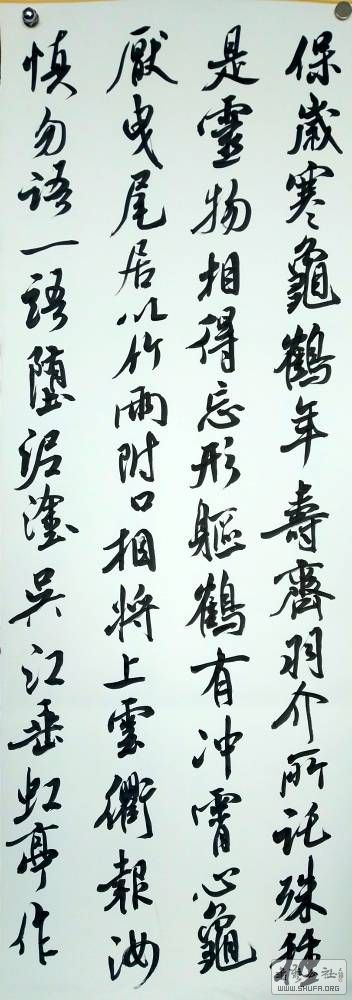 保歲寒龜鶴年壽齊羽介所託殊種
是靈物相得忘形軀鶴有冲霄心龜
厭曳尾居以竹兩附口相將上雲衢報汝
慎勿語一語墮泥塗吳江垂虹亭作
WWW.SHUFA.ORG